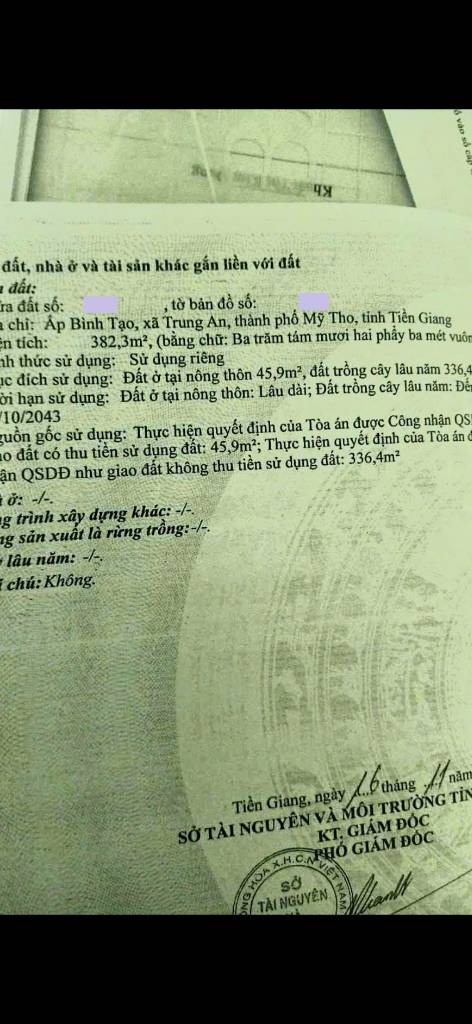 đất, nhà ở và tài sản khác gắn liền với đất
đất:
ửa đất số: , tờ bản đồ số:
chỉ: Ấp Bình Tạo, xã Trung An, thành phố Mỹ Tho, tỉnh Tiền Giang
ện tích: 382,3m², (bằng chữ: Ba trăm tám mươi hai phẩy ba mét vuôn
nh thức sử dụng: Sử dụng riêng
ục đích sử dụng: Đất ở tại nông thôn 45,9m², đất trồng cây lâu năm 336,4
ời hạn sử dụng: Đất ở tại nông thôn: Lâu dài; Đất trồng cây lâu năm: Đến
/10/2043
guồn gốc sử dụng: Thực hiện quyết định của Tòa án được Công nhận QS
ao đất có thu tiền sử dụng đất: 45,9m²; Thực hiện quyết định của Tòa án đ
ận QSDĐ như giao đất không thu tiền sử dụng đất: 336,4m²
ở: -/-.
ng trình xây dựng khác: -/-.
ng sản xuất là rừng trồng:-/-.
lâu năm: -/-.
chú: Không.
Tiền Giang, ngày 16 tháng 11 năm
SỞ TÀI NGUYÊN VÀ MÔI TRƯỜNG TỈN
KT. GIÁM ĐỐC
PHÓ GIÁM ĐỐC
HÒA X.H.C.N VIỆT NAM
SỞ
TÀI NGUYÊN